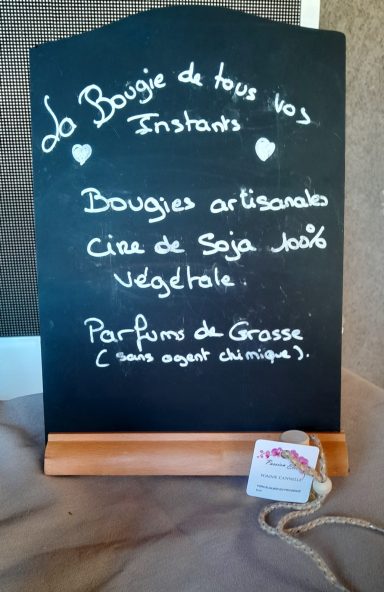 La Bougie de tous vos
Instants
Bougies artisanales
Cire de Soja 100%
végétale.
Parfums de Grasse
( sans agent chimique ).
POMME CANNELLE